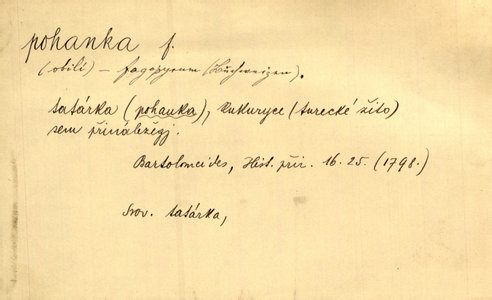 pohanka f.
(obilí) – fagopyrum (Buchweizen).
tatárka (pohanka), kukuryce (turecké žito)
sem přináležegj.
Bartolomeides, Hist. přir. 16. 25. (1798.)
Srov. tatárka,